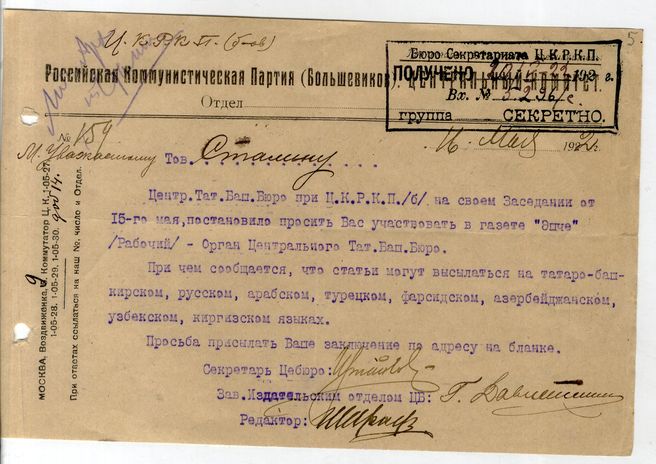 Ц.К.Р.К.П. (б-ов)
5.
Бюро Секретариата Ц.К.Р.К.П.
ПОЛУЧЕНО 192 г.
Вх. №
группа СЕКРЕТНО.
Российская Коммунистическая Партия (Большевиков). ЦЕНТРАЛЬНЫЙ КОМИТЕТ.
Отдел
№ 159
16 Мая 1922 г.
М. Уважаемому Тов. Сталину
Центр.Тат.Баш.Бюро при Ц.К.Р.К.П./б/ на своем Заседании от
15-го мая,постановило просить Вас участвовать в газете "Эшче"
/Рабочий/ - Орган Центрального Тат.Баш.Бюро.
При чем сообщается, что статьи могут высылаться на татаро-баш-
кирском, русском, арабском, турецком, фарсидском, азербейджанском,
узбекском, киргизском языках.
Просьба присылать Ваше заключение по адресу на бланке.
Секретарь Цебюро:
Зав.Издательским отделом ЦБ: Г.
Редактор:
МОСКВА, Воздвиженка, 9 Коммутатор Ц. К. 1-05-27,
1-05-28, 1-05-29, 1-05-30. доб 14.
При ответах ссылаться на наш №, число и Отдел.